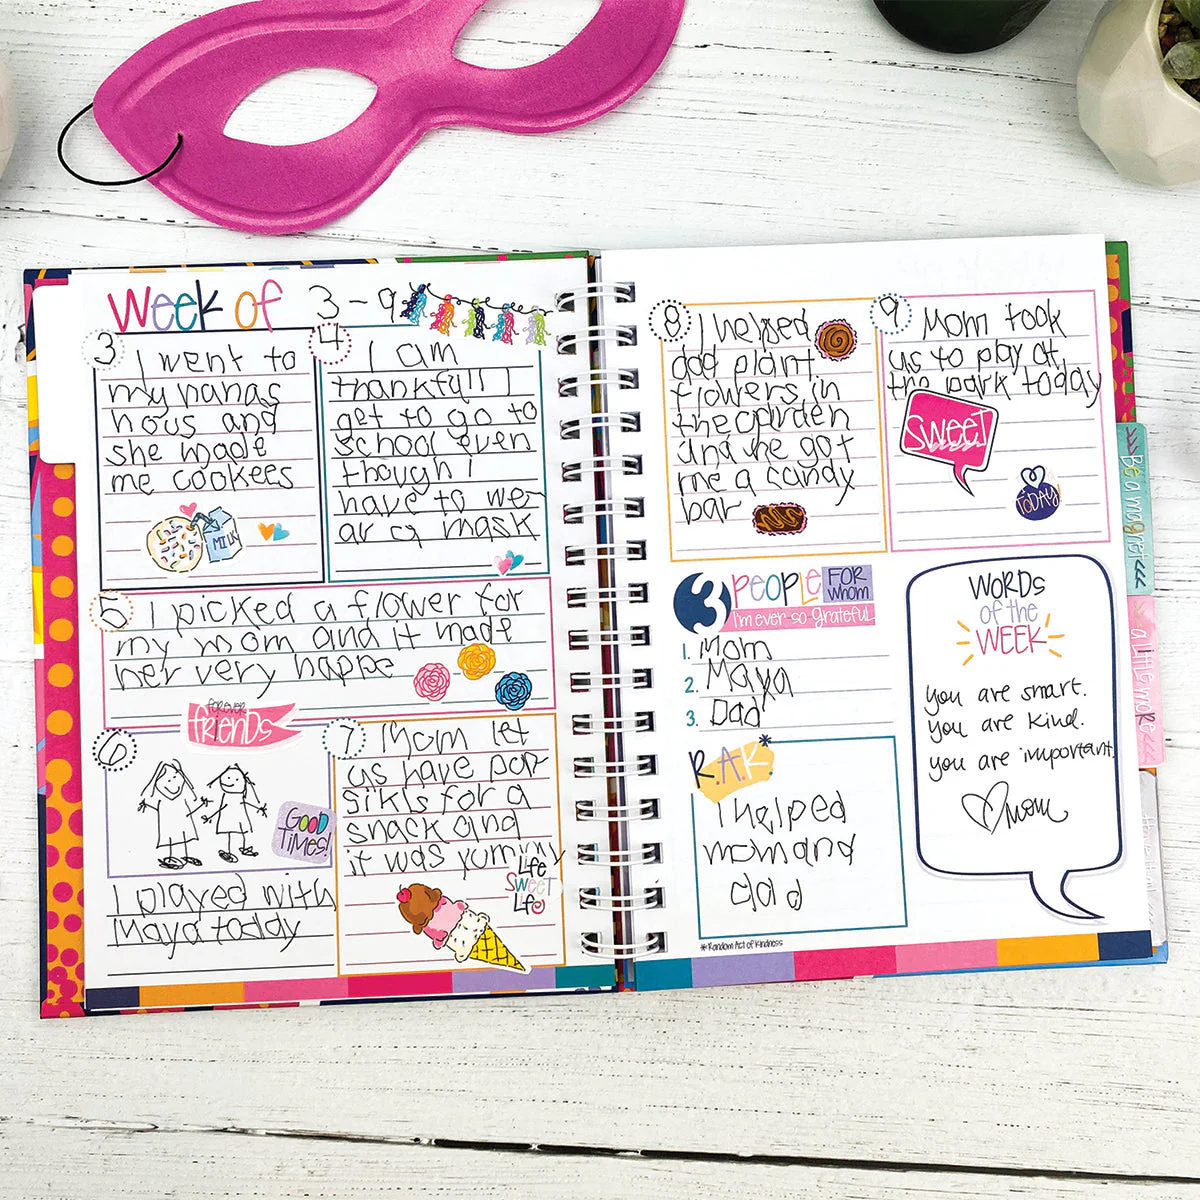 Week of 3-9
3
I went to
my nanas
hous and
she made
me cookees
MILK
4
I am
thankfull I
get to go to
school even
though I
have to we-
ar a mask
5
I picked a flower for
my mom and it made
her very happe
FOREVER
friends
6
GOOD
TIMES!
I played with
Maya toddy
7
Mom let
us have pop-
sikls for a
snack and
it was yummy
Life
SWEET
Life
8
I helped
dad plant
flowers in
the garden
and he got
me a candy
bar
9
Mom took
us to play at
the park today
SWEET
TODAY
3 PEOPLE FOR whom
I'm ever so grateful
1. Mom
2. Maya
3. Dad
R.A.K*
I helped
mom and
dad
*Random Act of Kindness
WORDS
of the
WEEK
you are smart.
you are kind.
you are important.
mom
Be a mogner
a little more